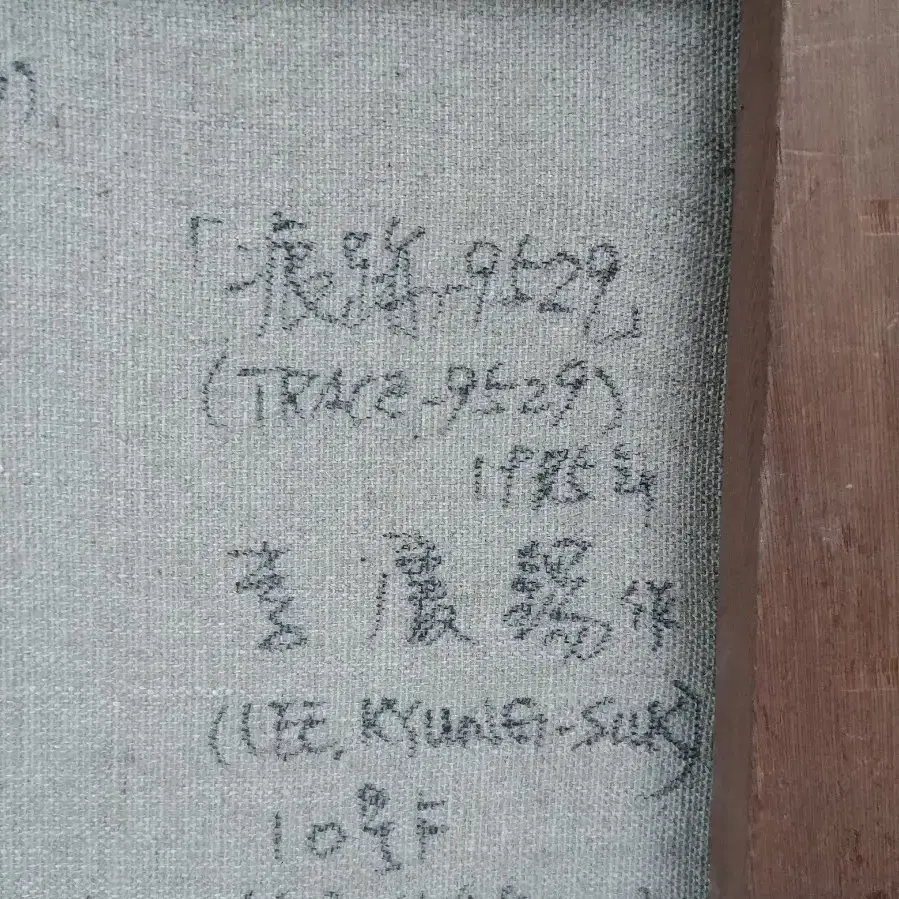 「痕跡-9529」
(TRACE-9529)
1995年
李 慶 錫 作
(LEE, KYUNG-SUK)
10호F